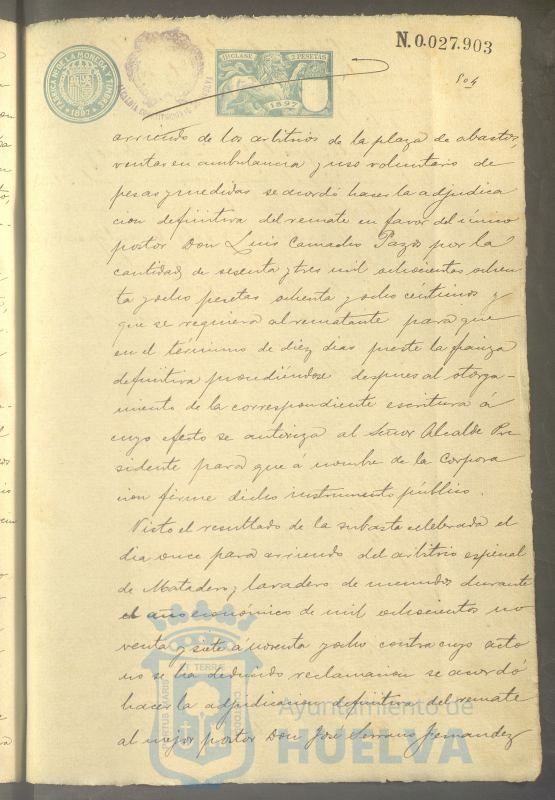 N.0.027.903
FABRICA NL. DE LA MONEDA Y TIMBRE
1897
11ª CLASE 2 PESETAS
1897
804
arriendo de los arbitrios de la plaza de abastos,
ventas en ambulancia y uso voluntario de
pesas y medidas se acordó hacer la adjudica
cion definitiva del remate en favor del único
postor Don Luis Camacho Pazos por la
cantidad de sesenta y tres mil ochocientas ochen
ta y ocho pesetas ochenta y ocho centimos y
que se requiera al rematante para que
en el término de diez dias preste la fianza
definitiva procediéndose despues al otorga-
miento de la correspondiente escritura á
cuyo efecto se autoriza al Señor Alcalde Pre
sidente para que á nombre de la Corpora
cion firme dicho instrumento público.
Visto el resultado de la subasta celebrada el
dia once para arriendo del arbitrio especial
de Matadero y lavadero de menudos durante
el año económico de mil ochocientos no
venta y siete á noventa y ocho contra cuyo acto
no se ha deducido reclamacion se acordó
hacer la adjudicacion definitiva del remate
al mejor postor Don José Serrano Fernandez
PORTUS MARIS ET TERRE CUSTODIA
Ayuntamiento de
HUELVA